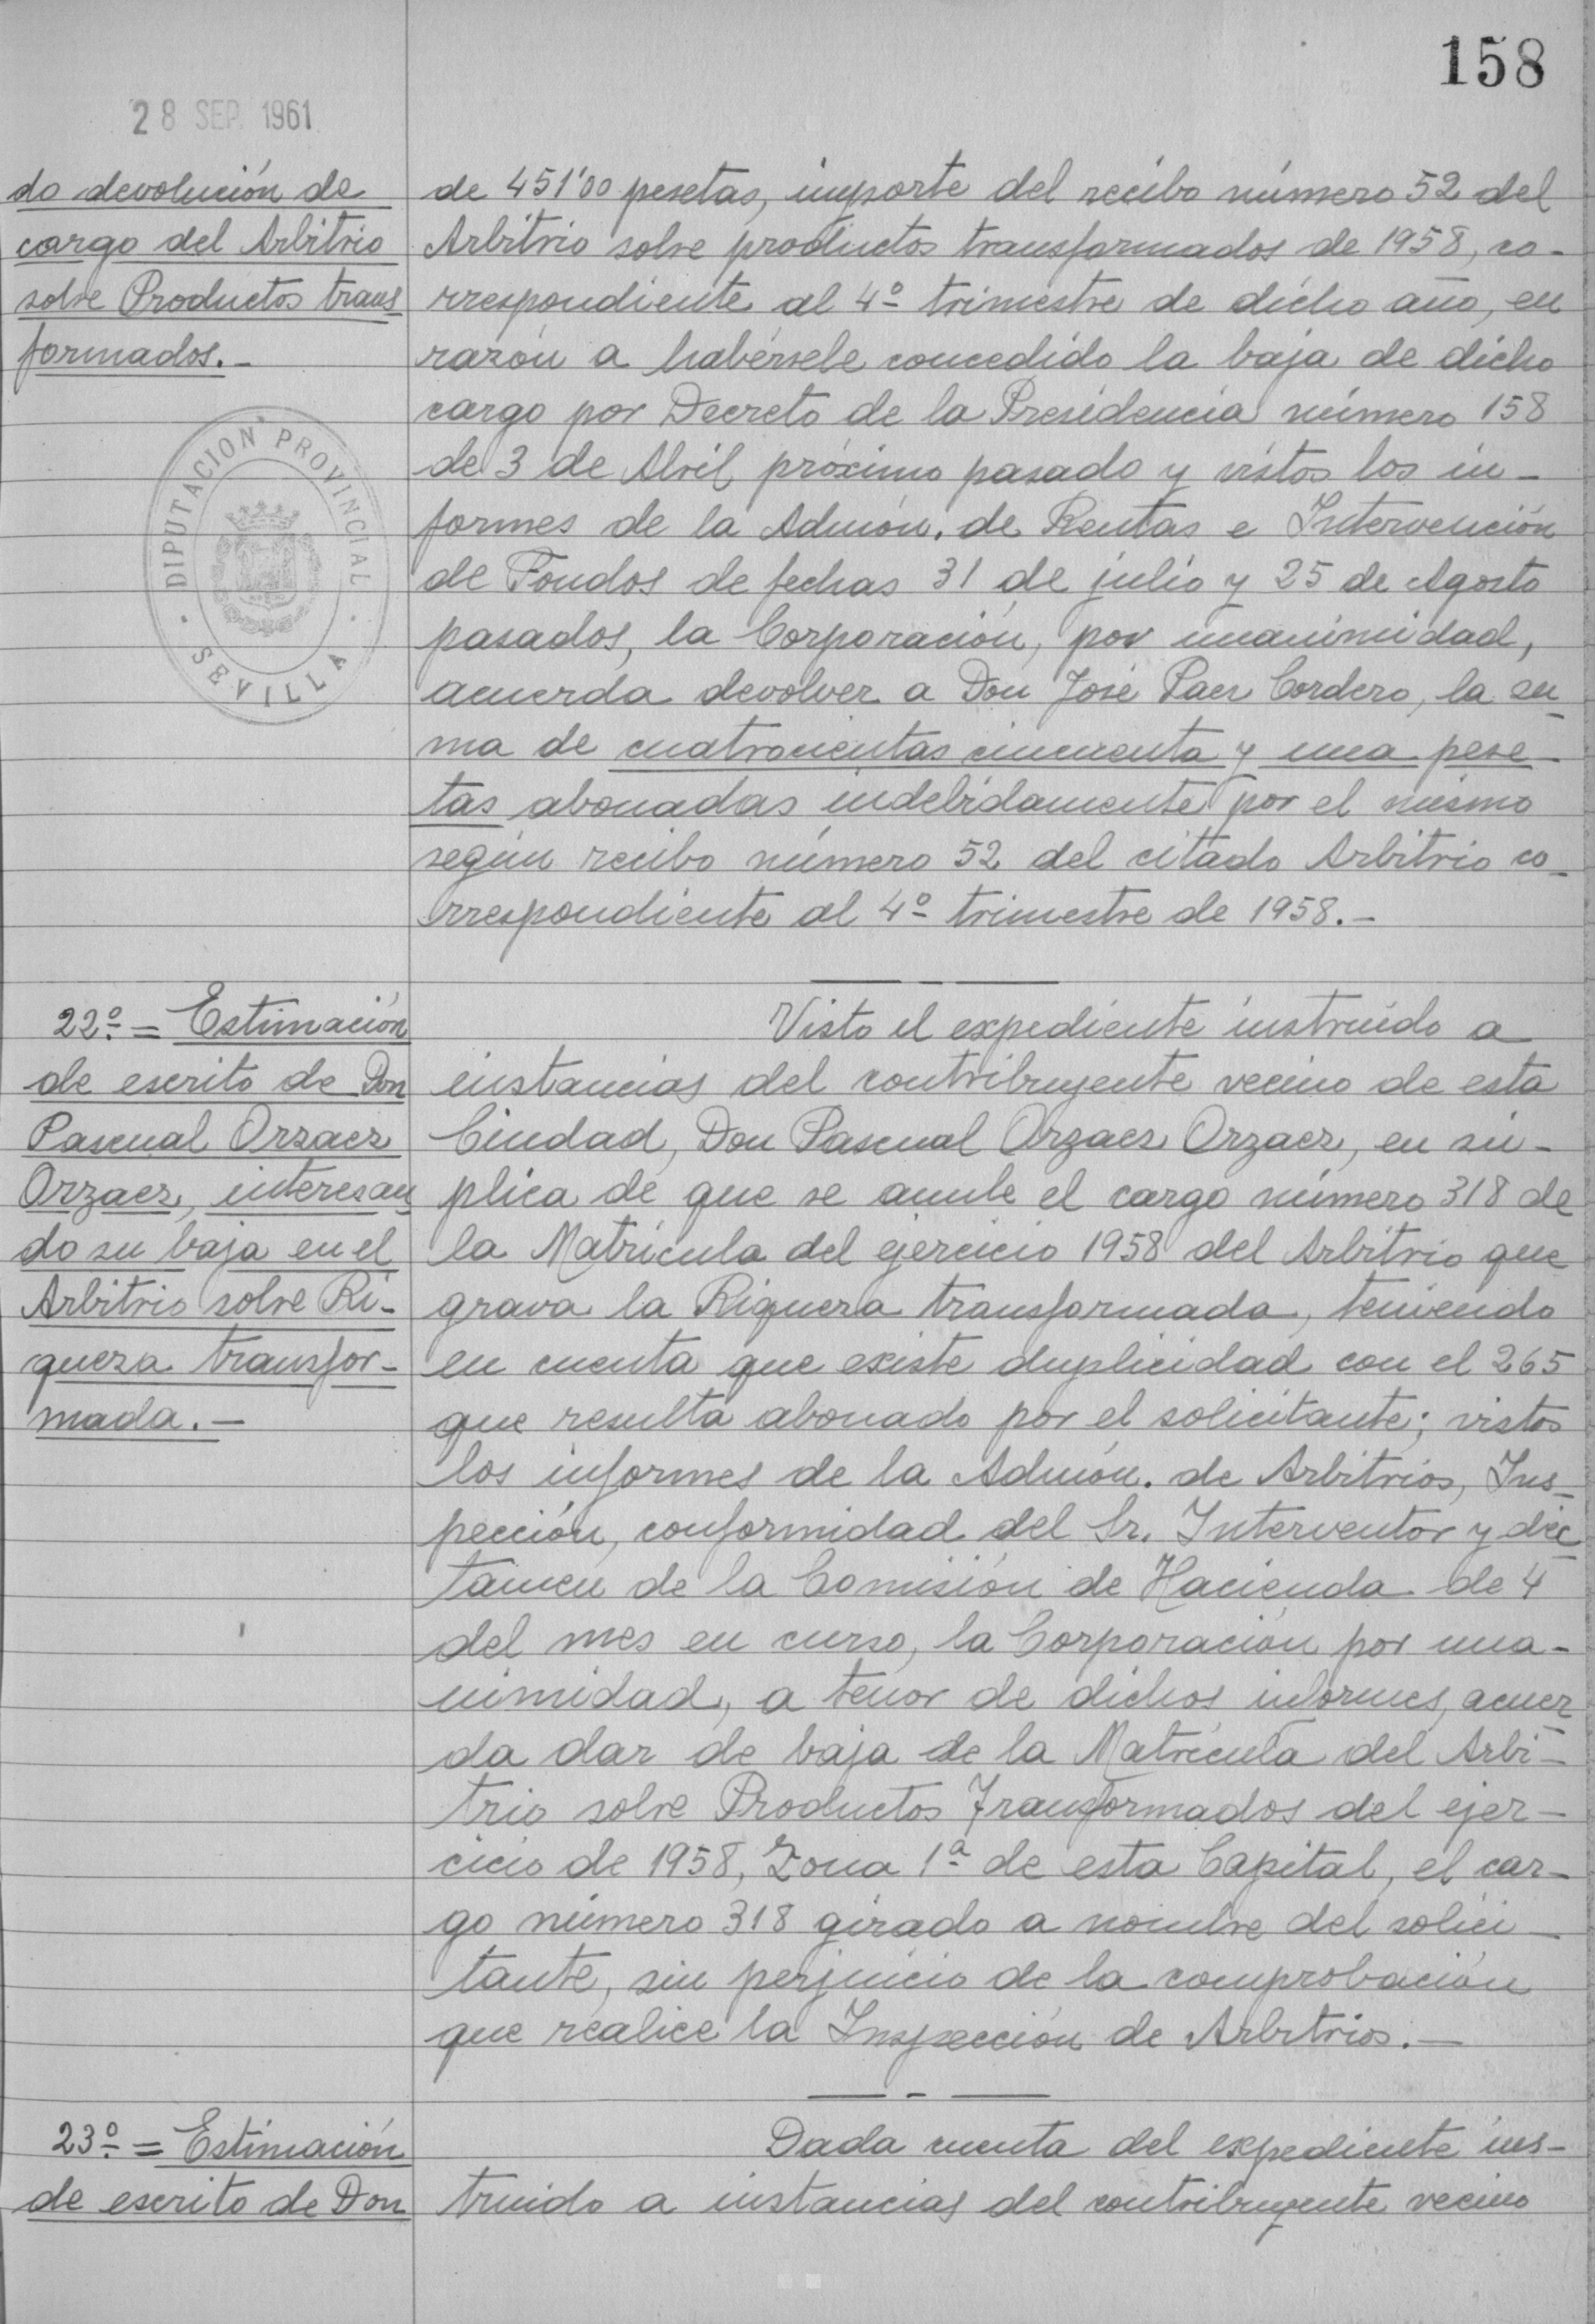 158
28 SEP. 1961
do devolución de
cargo del Arbitrio
sobre Productos trans
formados.-
DIPUTACION PROVINCIAL
· SEVILLA ·
de 451'00 pesetas, importe del recibo número 52 del
Arbitrio sobre productos transformados de 1958, co-
rrespondiente al 4º trimestre de dicho año, en
razón a habérsele concedido la baja de dicho
cargo por Decreto de la Presidencia número 158
de 3 de Abril próximo pasado y vistos los in-
formes de la Admón. de Rentas e Intervención
de Fondos de fechas 31 de julio y 25 de Agosto
pasados, la Corporación, por unanimidad,
acuerda devolver a Don José Paez Cordero, la su-
ma de cuatrocientas cincuenta y una pese-
tas abonadas indebidamente por el mismo
según recibo número 52 del citado Arbitrio co-
rrespondiente al 4º trimestre de 1958.-
22º.= Estimación
de escrito de Don
Pascual Orzaez
Orzaez, interesan
do su baja en el
Arbitrio sobre Ri-
queza transfor-
mada.-
Visto el expediente instruído a
instancias del contribuyente vecino de esta
Ciudad, Don Pascual Orzaez Orzaez, en sú-
plica de que se anule el cargo número 318 de
la Matrícula del ejercicio 1958 del Arbitrio que
grava la Riqueza transformada, teniendo
en cuenta que existe duplicidad con el 265
que resulta abonado por el solicitante; vistos
los informes de la Admón. de Arbitrios, Ins-
pección, conformidad del Sr. Interventor y dic-
tamen de la Comisión de Hacienda de 4
del mes en curso, la Corporación por una-
nimidad, a tenor de dichos informes, acuer-
da dar de baja de la Matrícula del Arbi-
trio sobre Productos Transformados del ejer-
cicio de 1958, Zona 1ª de esta Capital, el car-
go número 318 girado a nombre del solici-
tante, sin perjuicio de la comprobación
que realice la Inspección de Arbitrios.-
23º.= Estimación
de escrito de Don
Dada cuenta del expediente ins-
truido a instancias del contribuyente vecino